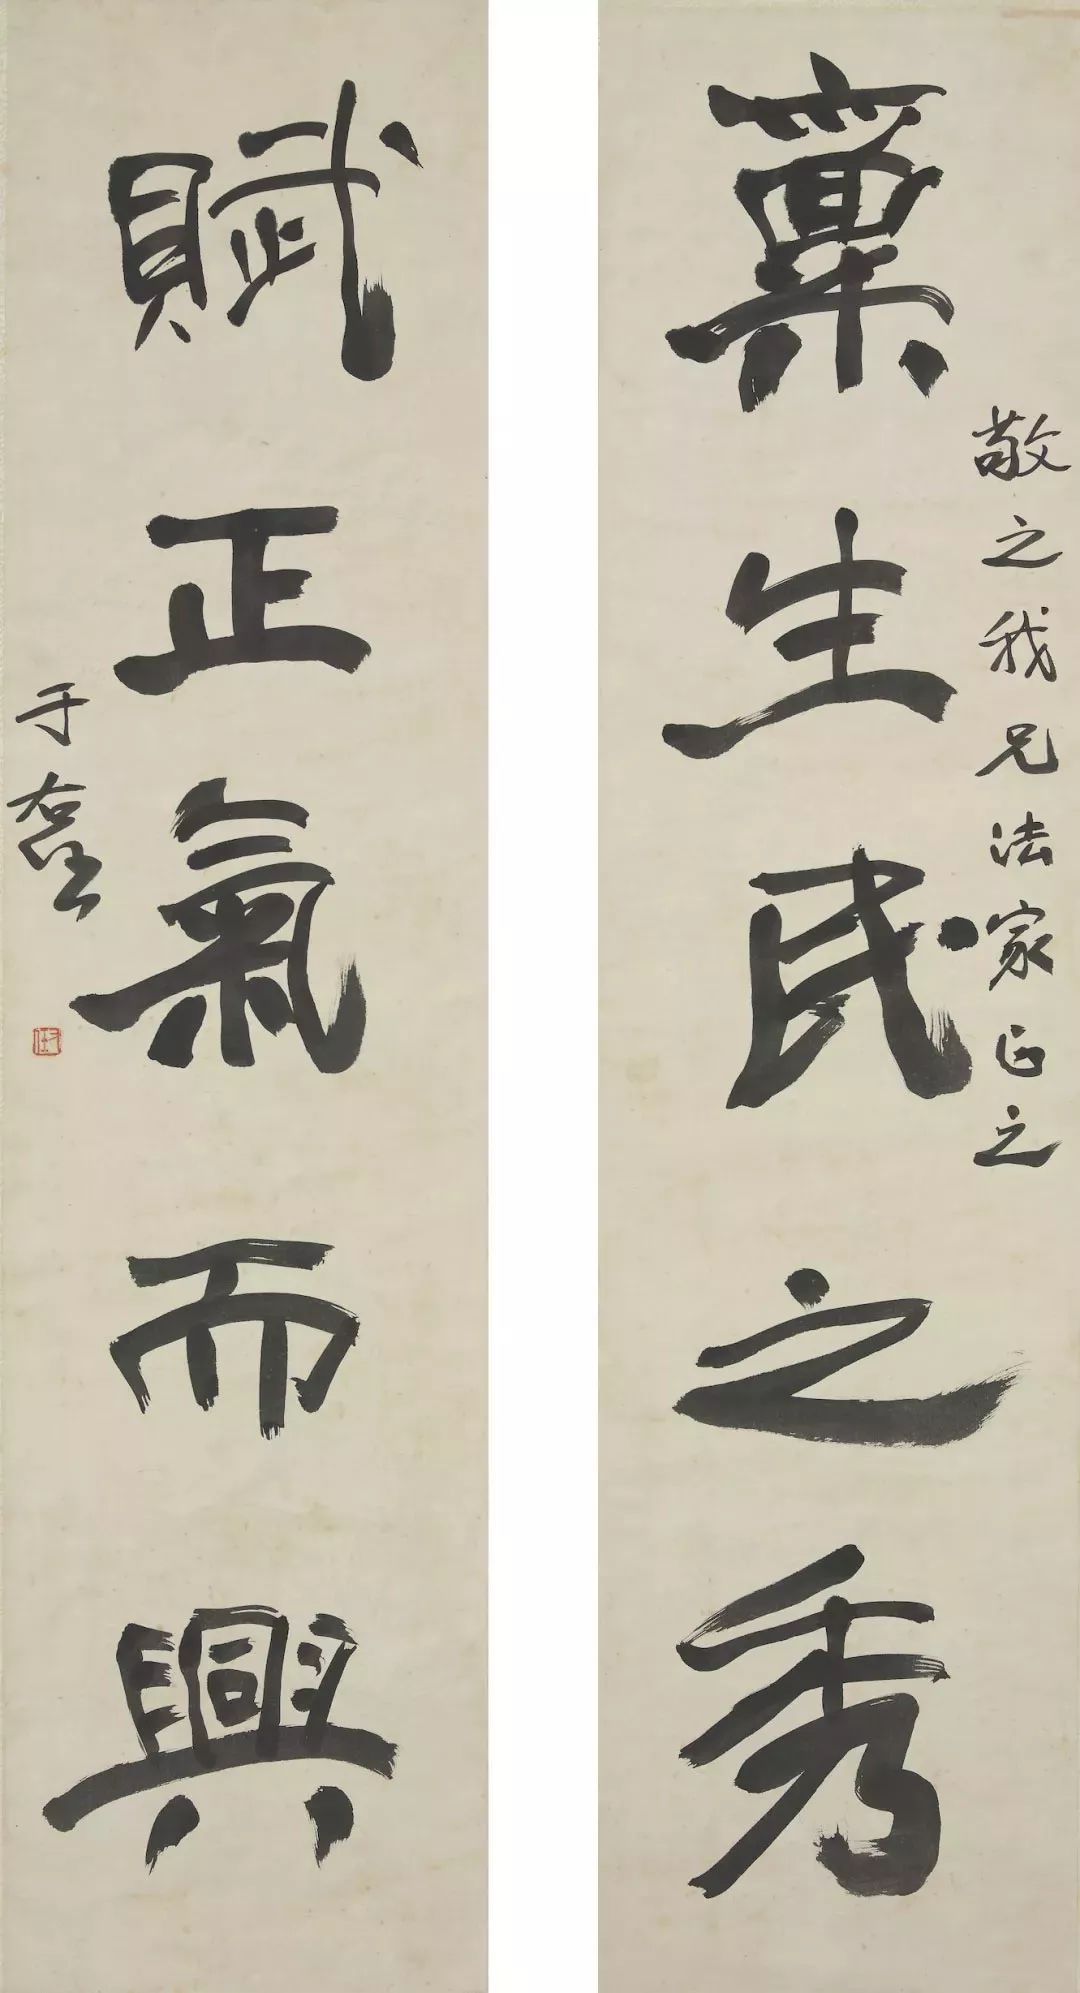 稟生民之秀
敬之我兄法家正之
賦正氣而興
于右任
右任